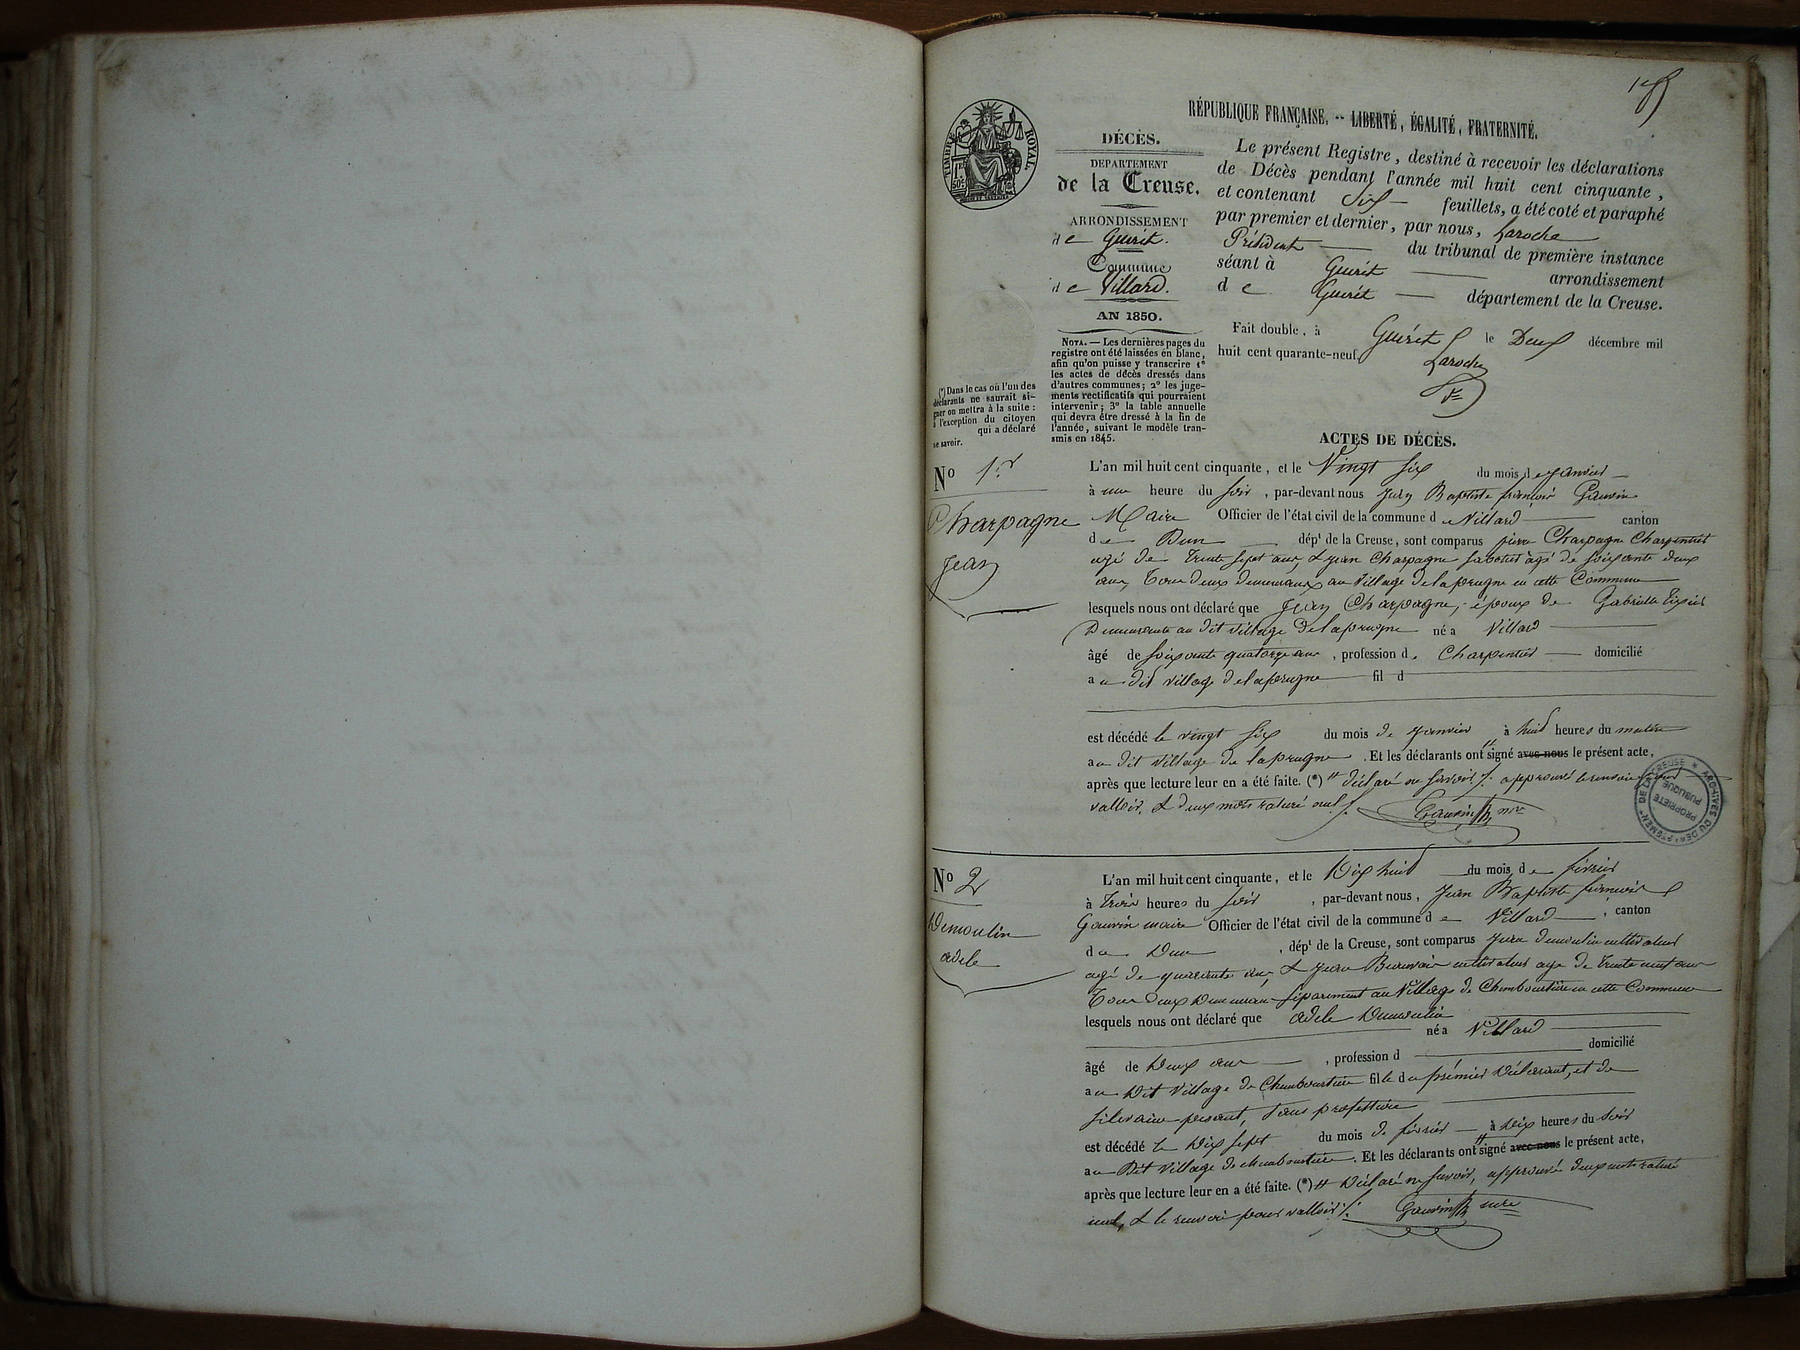 RÉPUBLIQUE FRANÇAISE, -- LIBERTÉ, ÉGALITÉ, FRATERNITÉ.
TIMBRE ROYAL
1 FR 50 C
DÉCÈS.
DÉPARTEMENT
de la Creuse.
ARRONDISSEMENT
de Guéret.
Commune
de Villard.
AN 1850.
NOTA. — Les dernières pages du
registre ont été laissées en blanc,
afin qu'on puisse y transcrire 1°
les actes de décès dressés dans
d'autres communes; 2° les juge-
ments rectificatifs qui pourraient
intervenir; 3° la table annuelle
qui devra être dressé à la fin de
l'année, suivant le modèle tran-
smis en 1845.
(*) Dans le cas où l'un des
déclarants ne saurait si-
gner on mettra à la suite :
à l'exception du citoyen
qui a déclaré
ne savoir.
Le présent Registre, destiné à recevoir les déclarations
de Décès pendant l'année mil huit cent cinquante,
et contenant Six feuillets, a été coté et paraphé
par premier et dernier, par nous, Laroche
Président du tribunal de première instance
séant à Guéret arrondissement
de Guéret département de la Creuse.
Fait double, à Guéret le Deux décembre mil
huit cent quarante-neuf.
Laroche
ACTES DE DÉCÈS.
N° 1er
Charpagne
Jean
L'an mil huit cent cinquante, et le Vingt Six du mois de Janvier
à une heure du soir, par-devant nous Jean Baptiste Gauvin
Maire Officier de l'état civil de la commune de Villard canton
de Dun dépt de la Creuse, sont comparus pierre Charpagne Charpentier
agé de Trente Sept ans, & jean Charpagne Sabotier âgé de soixante deux
ans, Tous deux demeurans au Village de laprugne en cette Commune
lesquels nous ont déclaré que Jean Charpagne, époux de Gabrielle
Demeurante au dit village De laprugne né à Villard
âgé de soixante quatorze ans, profession d. Charpentier domicilié
au dit village de laprugne fil d
est décédé le vingt Six du mois de Janvier à huit heures du matin
au dit village de laprugne. Et les déclarants ont signé avec nous le présent acte,
après que lecture leur en a été faite. (*) déclaré ne savoir ./. approuvé le renvoi pour
valloir, & deux mots raturé nul ./. Gauvin mre
ARCHIVES DU DEPARTEMENT DE LA CREUSE
PROPRIÉTÉ PUBLIQUE
N° 2
Demoulin
adele
L'an mil huit cent cinquante, et le Dix huit du mois de février
à Trois heures du soir, par-devant nous, Jean Baptiste
Gauvin maire Officier de l'état civil de la commune de Villard, canton
de Dun, dépt de la Creuse, sont comparus Jean demoulin cultivateur
agé de quarante ans, & Jean cultivateur age de Trente ans
Tous Deux Demeurans séparément au Village de Chambourtière en cette Commune
lesquels nous ont déclaré que adele Demoulin
né à Villard
âgé de Deux ans, profession d domicilié
au Dit Village de Chambourtière fille du prémier Déclarant, et de
Silvaine, sans profession
est décédé le Dix Sept du mois de février à Dix heures du Soir
au Dit village de chambourtière. Et les déclarants ont signé avec nous le présent acte,
après que lecture leur en a été faite. (*) Déclaré ne savoir, approuvé deux mots raturé
nul, & le renvoi pour valloir ./. Gauvin mre